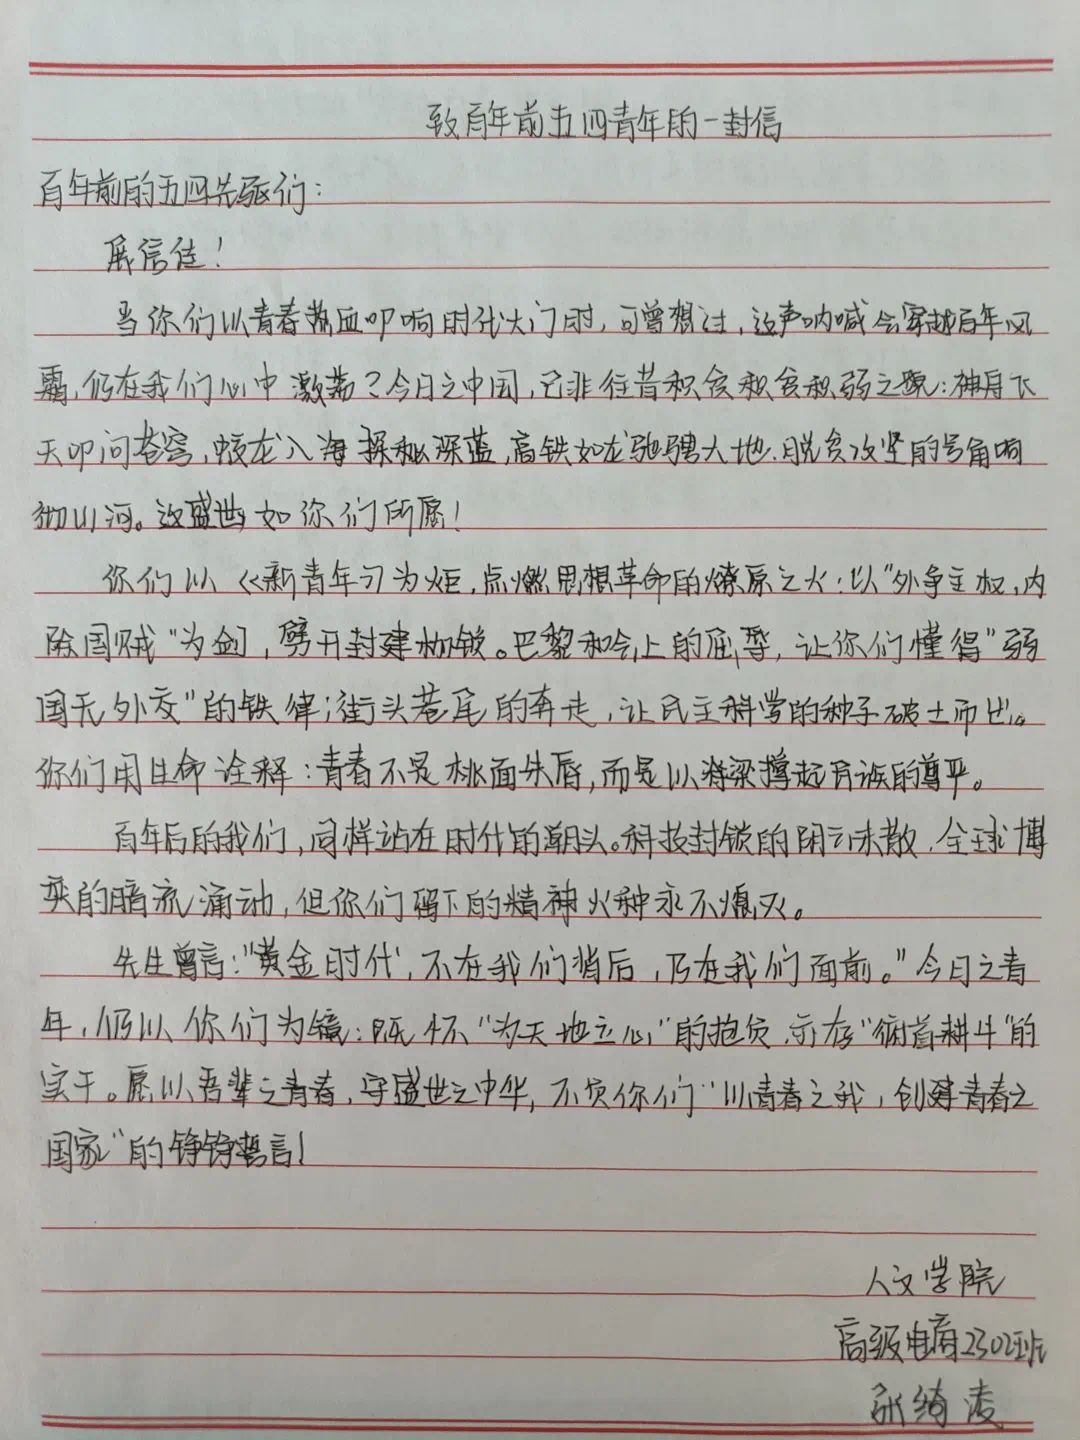 致百年前五四青年的一封信
百年前的五四先驱们:
展信佳!
当你们以青春热血叩响时代大门时,可曾想过,这声呐喊会穿越百年风
霜,仍在我们心中激荡?今日之中国,已非往昔积贫积贫积弱之貌:神舟飞
天叩问苍穹,蛟龙入海探秘深蓝,高铁如龙驰骋大地.脱贫攻坚的号角响
彻山河。这盛世,如你们所愿!
你们以《新青年》为炬,点燃思想革命的燎原之火.以"外争主权,内
除国贼"为剑,劈开封建枷锁。巴黎和会上的屈辱,让你们懂得"弱
国无外交"的铁律;街头巷尾的奔走,让民主科学的种子破土而出。
你们用生命诠释:青春不是桃面朱唇,而是以脊梁撑起民族的尊严。
百年后的我们,同样站在时代的潮头。科技封锁的阴云未散.全球博
弈的暗流涌动,但你们留下的精神火种永不熄灭。
先生曾言:"黄金时代,不在我们背后,乃在我们面前。"今日之青
年,仍以你们为镜:既怀"为天地立心"的抱负.亦存"俯首耕牛"的
实干。愿以吾辈之青春,守盛世之中华,不负你们"以青春之我,创建青春之
国家"的铮铮誓言!
人文学院
高级电商2302班
张绮凌